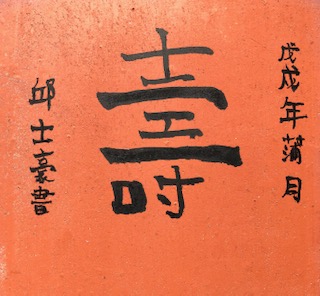 戊戌年蒲月
壽
邱士豪書